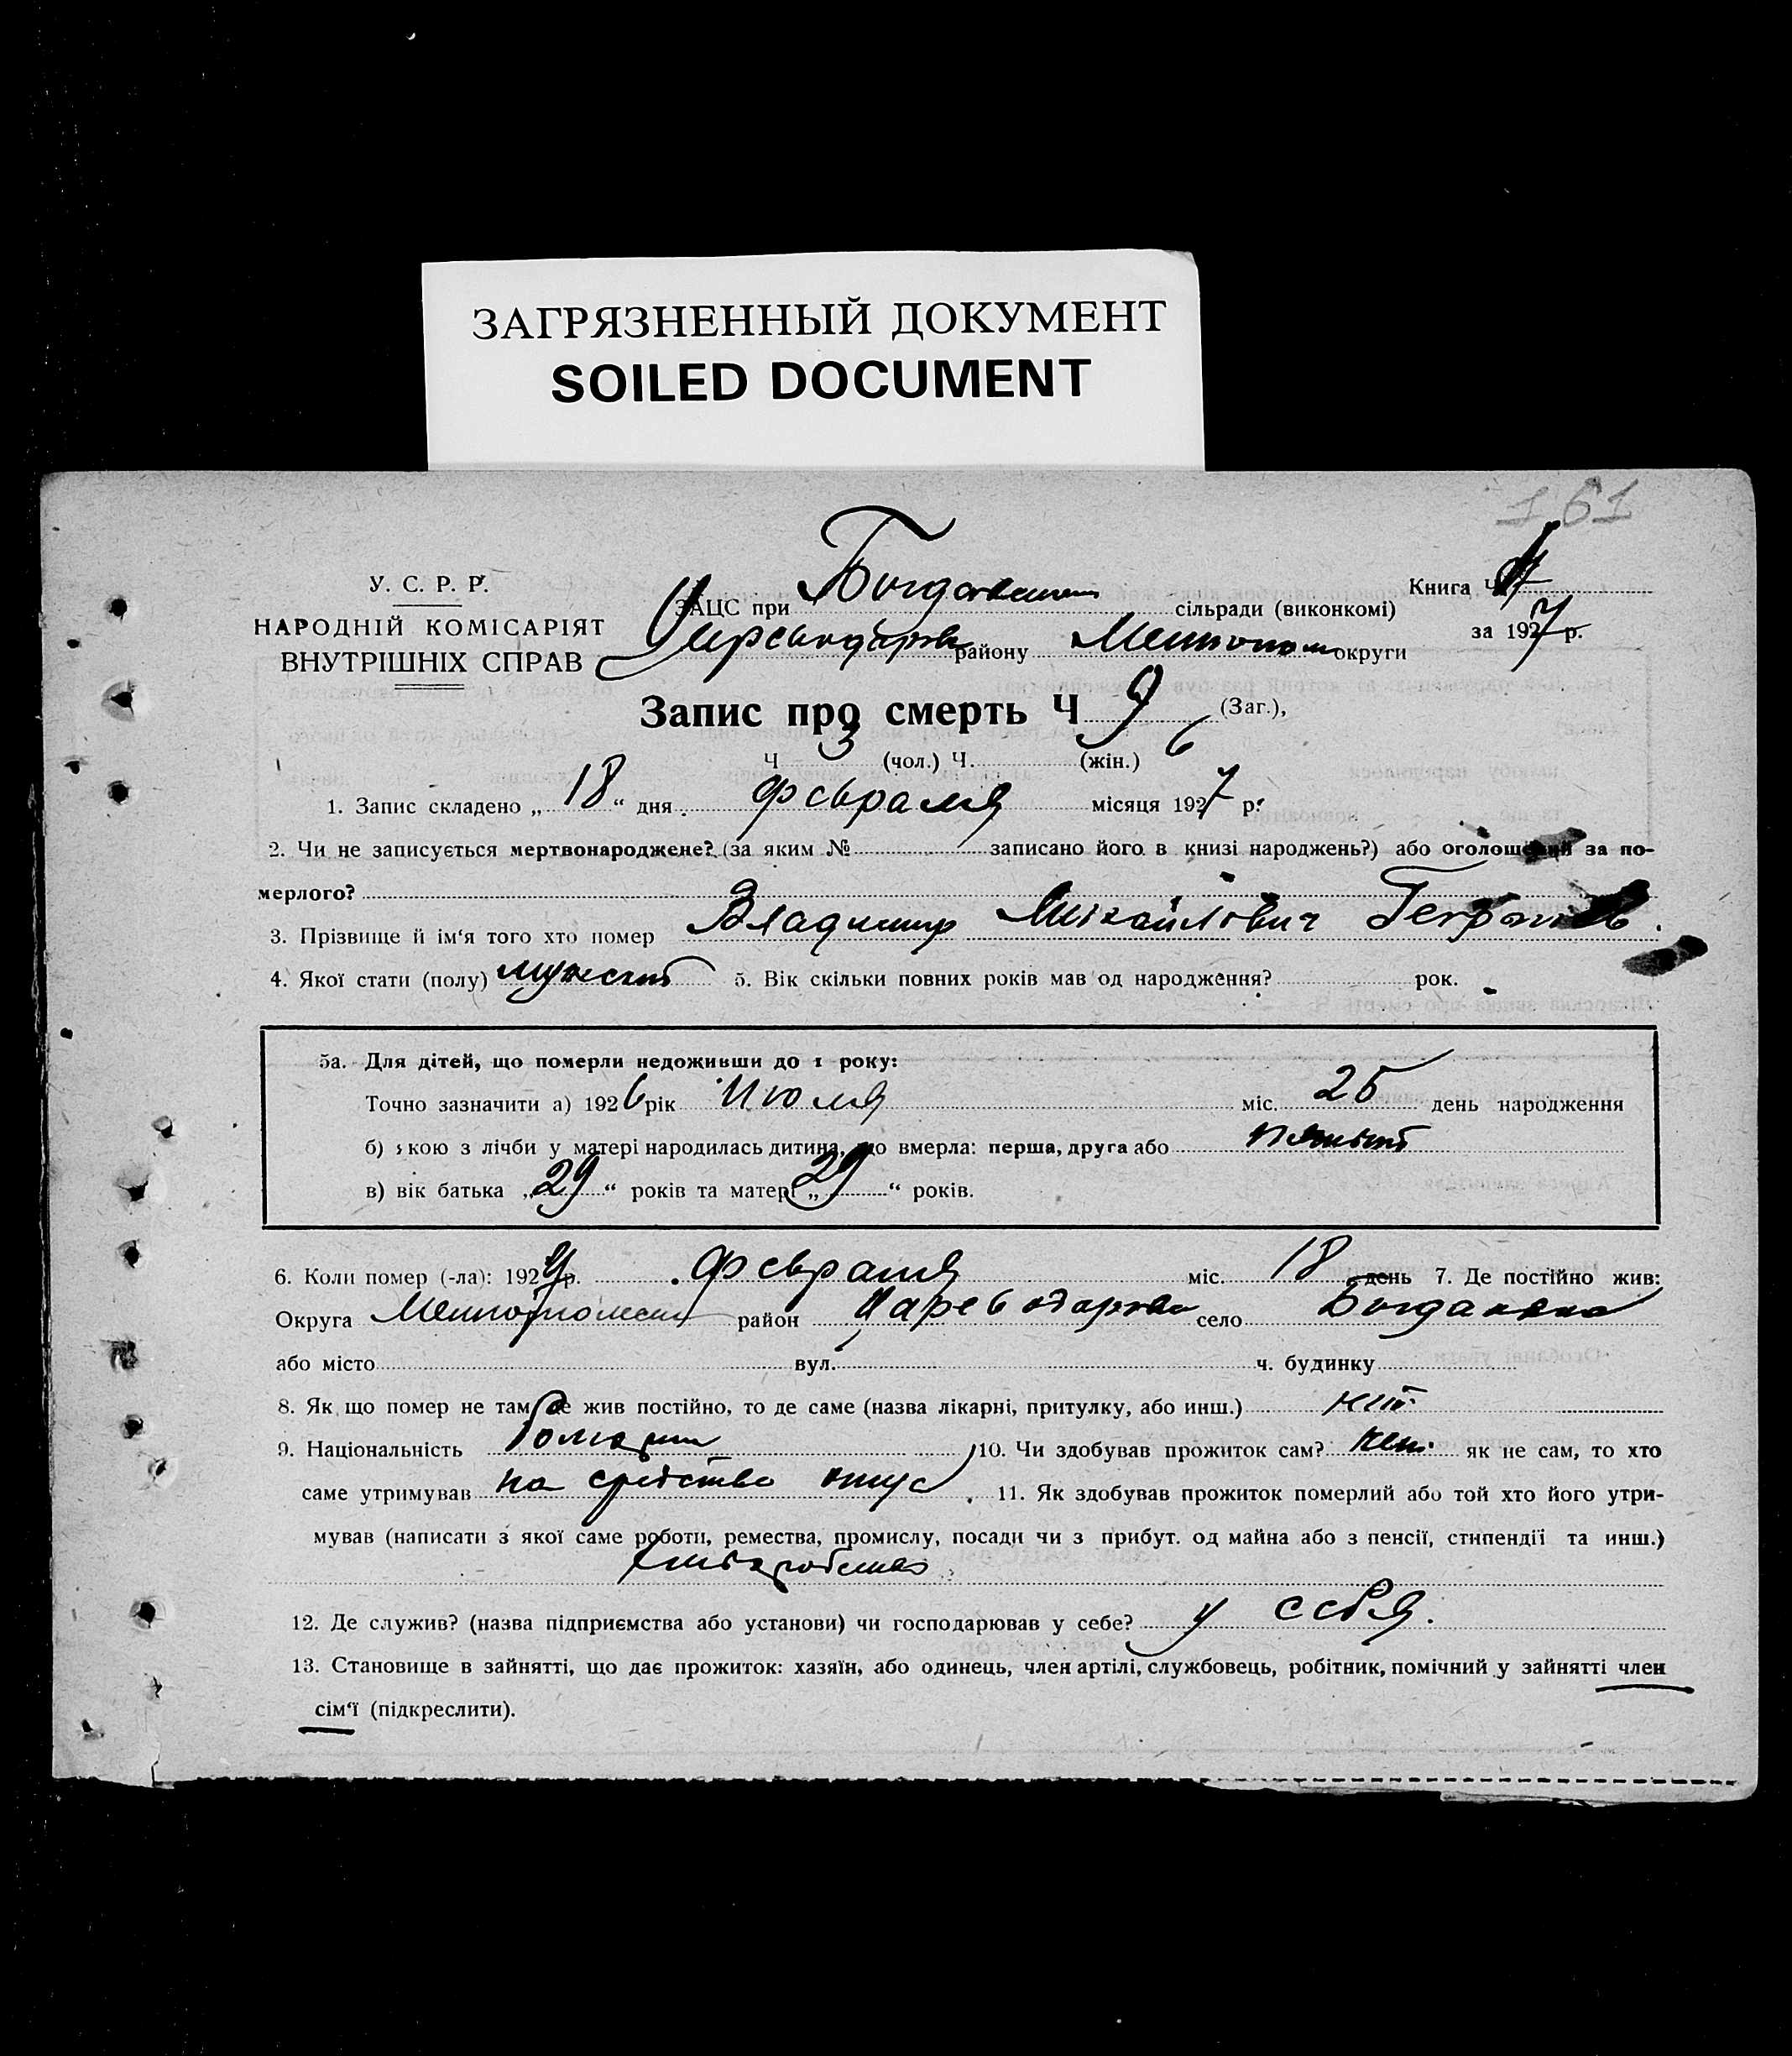 ЗАГРЯЗНЕННЫЙ ДОКУМЕНТ
SOILED DOCUMENT
161
У. С. Р. Р.
НАРОДНІЙ КОМІСАРІЯТ
ВНУТРІШНІХ СПРАВ
ЗАЦС при сільради (виконкомі)
району округи
Книга Ч
за 1927 р.
Запис про смерть Ч 9 (Заг.),
Ч 3 (чол.) Ч. 6 (жін.)
1. Запис складено „ 18 “ дня Февраля місяця 1927 р.
2. Чи не записується мертвонароджене? (за яким № записано його в книзі народжень?) або оголошений за по-
мерлого?
3. Прізвище й ім'я того хто помер Владимир Михайлович
4. Якої стати (полу) мужской 5. Вік скільки повних років мав од народження? рок.
5а. Для дітей, що померли недоживши до 1 року:
Точно зазначити а) 1926 рік Июля міс. 25 день народження
б) якою з лічби у матері народилась дитина, що вмерла: перша, друга або пятый
в) вік батька „ 29 “ років та матері „ 29 “ років.
6. Коли помер (-ла): 1927 р. Февраля міс. 18 день 7. Де постійно жив:
Округа район село Богдановка
або місто вул. ч. будинку
8. Як що помер не там де жив постійно, то де саме (назва лікарні, притулку, або инш.) нет
9. Національність 10. Чи здобував прожиток сам? нет як не сам, то хто
саме утримував на средства отца 11. Як здобував прожиток померлий або той хто його утри-
мував (написати з якої саме роботи, ремества, промислу, посади чи з прибут. од майна або з пенсії, стипендії та инш.)
12. Де служив? (назва підприємства або установи) чи господарював у себе? у себя.
13. Становище в зайнятті, що дає прожиток: хазяїн, або одинець, член артілі, службовець, робітник, помічний у зайнятті член
сім'ї (підкреслити).